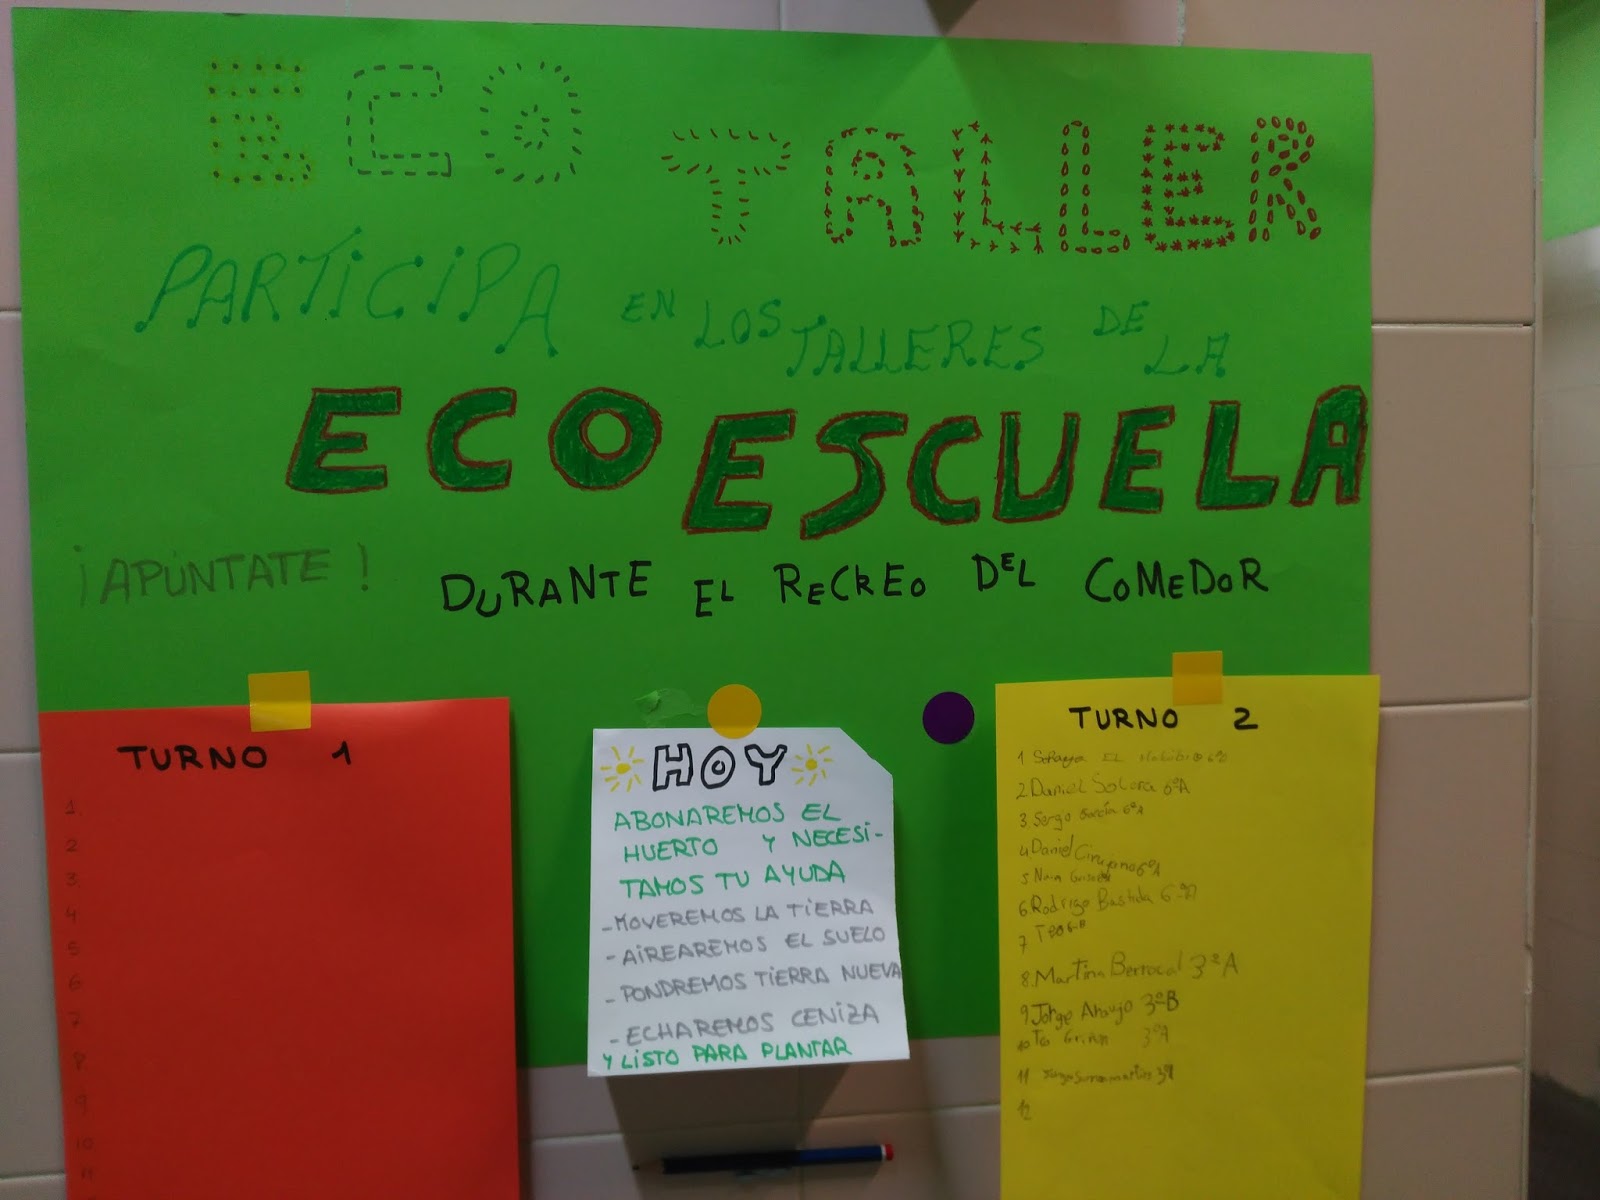 ECO TALLER
PARTICIPA EN LOS TALLERES DE LA
ECOESCUELA
¡APÚNTATE! DURANTE EL RECREO DEL COMEDOR
TURNO 1
1.
2
3.
4
5
6
7
8.
9
10
11
HOY
ABONAREMOS EL
HUERTO Y NECESI-
TAMOS TU AYUDA
-MOVEREMOS LA TIERRA
-AIREAREMOS EL SUELO
-PONDREMOS TIERRA NUEVA
-ECHAREMOS CENIZA
Y LISTO PARA PLANTAR
TURNO 2
1 EL
2 Daniel Solera 6ºA
3. Sergo García 6ºA
4 Daniel 6ºA
5
6 Rodrigo Bastida
7
8. Martina Berrocal 3ºA
9 Jorge Araujo 3ºB
10 3ºA
11
12